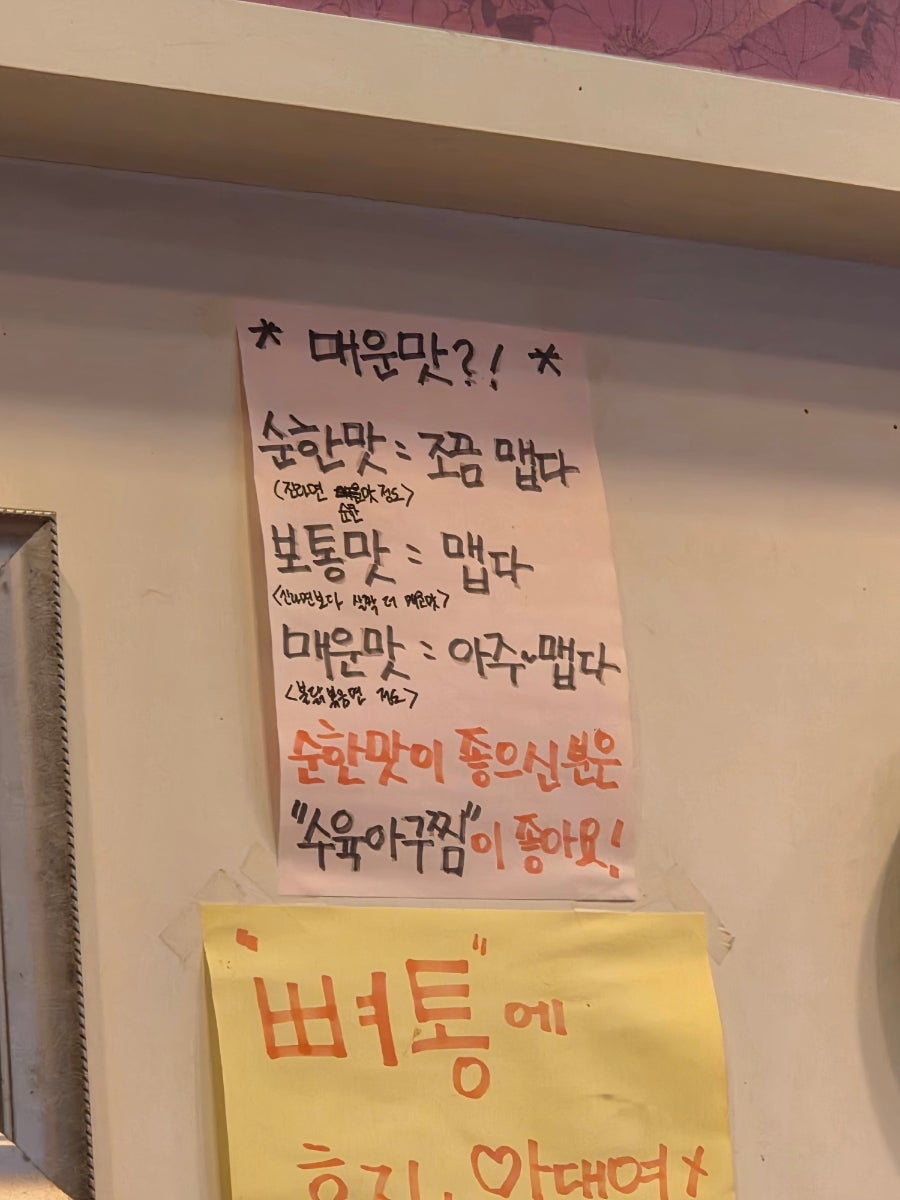 * 매운맛?! *
순한맛 = 쪼끔 맵다
(진라면 순한맛정도)
보통맛 = 맵다
<신라면보다 살짝 더 매운맛>
매운맛 = 아주~맵다
<불닭볶음면 정도>
순한맛이 좋으신분은
"수육아구찜"이 좋아요!
"뼈통"에
휴지, ♡